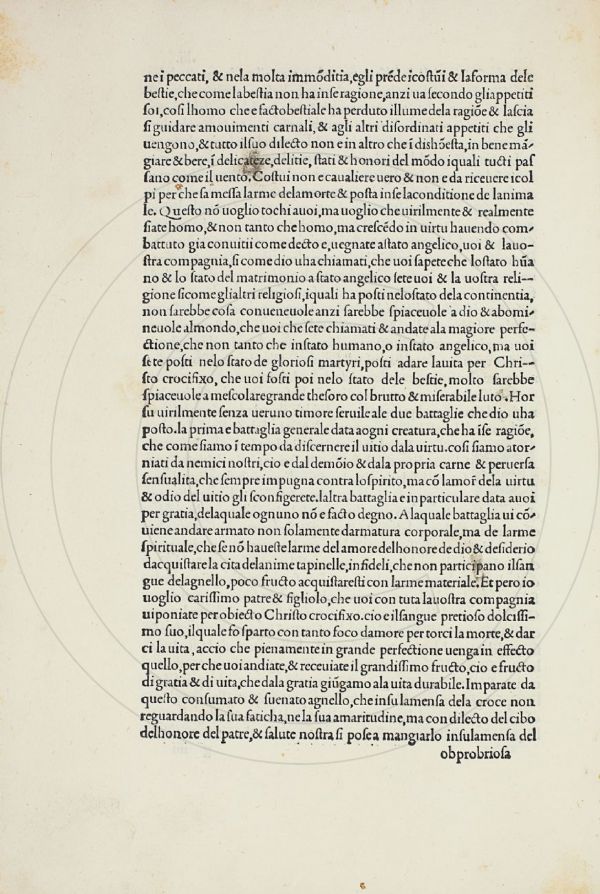 ne i peccati, & nela molta immõditia, egli prẽde icostũi & laforma dele
bestie, che come la bestia non ha inse ragione, anzi ua secondo gli appetiti
soi, cosi lhomo che e facto bestiale ha perduto illume dela ragiõe & lascia
si guidare amouimenti carnali, & agli altri disordinati appetiti che gli
uengono, & tutto il suo dilecto non e in altro che ĩ dishõesta, in bene mã-
giare & bere, ĩ delicateze, delitie, stati & honori del mõdo iquali tucti pas
sano come il uento. Costui non e caualiere uero & non e da riceuere icol
pi per che sa messa larme dela morte & posta inse laconditione de lanima
le. Questo nõ uoglio tochi a uoi, ma uoglio che uirilmente & realmente
siate homo, & non tanto che homo, ma crescẽdo in uirtu hauendo com-
battuto gia con uitii come decto e, uegnate astato angelico, uoi & la uo-
stra compagnia, si come dio uha chiamati, che uoi sapete che lo stato hũa
no & lo stato del matrimonio a stato angelico sete uoi & la uostra reli-
gione sicome glialtri religiosi, iquali ha posti nelo stato dela continentia,
non sarebbe cosa conueneuole anzi sarebbe spiaceuole a dio & abomi-
neuole almondo, che uoi che sete chiamati & andate ala magiore perfe-
ctione, che non tanto che instato humano, o instato angelico, ma uoi
sete posti nelo stato de gloriosi martyri, posti adare la uita per Chri-
sto crocifixo, che uoi fosti poi nelo stato dele bestie, molto sarebbe
spiaceuole a mescolare grande thesoro col brutto & miserabile luto. Hor
su uirilmente senza ueruno timore seruile ale due battaglie che dio uha
posto. la prima e battaglia generale data aogni creatura, che ha ĩse ragiõe,
che come siamo ĩ tempo da discernere il uitio dala uirtu. cosi siamo ator-
niati da nemici nostri, cio e dal demõio & dala propria carne & peruersa
sensualita, che sempre impugna contra lo spirito, ma cõ lamor̃ dela uirtu
& odio del uitio gli sconfigerete. laltra battaglia e in particulare data a uoi
per gratia, dela quale ognuno nõ e facto degno. A la quale battaglia ui cõ-
uiene andare armato non solamente darmatura corporale, ma de larme
spirituale, che se nõ haueste larme del amore del honore de dio & desiderio
dacquistare la cita del anime tapinelle, infideli, che non participano il san
gue delagnello, poco fructo acquistaresti con larme materiale. Et pero io
uoglio carissimo patre & figliolo, che uoi con tuta la uostra compagnia
ui poniate per obiecto Christo crocifixo. cio e il sangue pretioso dolcissi-
mo suo, il quale fo sparto con tanto foco damore per torci la morte, & dar
ci la uita, accio che pienamente in grande perfectione uenga in effecto
quello, per che uoi andiate, & receuiate il grandissimo fructo, cio e fructo
di gratia & di uita, che dala gratia giũgamo ala uita durabile. Imparate da
questo consumato & suenato agnello, che insu la mensa dela croce non
reguardando la sua faticha, ne la sua amaritudine, ma con dilecto del cibo
delhonore del patre, & salute nostra si pose a mangiarlo insu lamensa del
obprobriosa